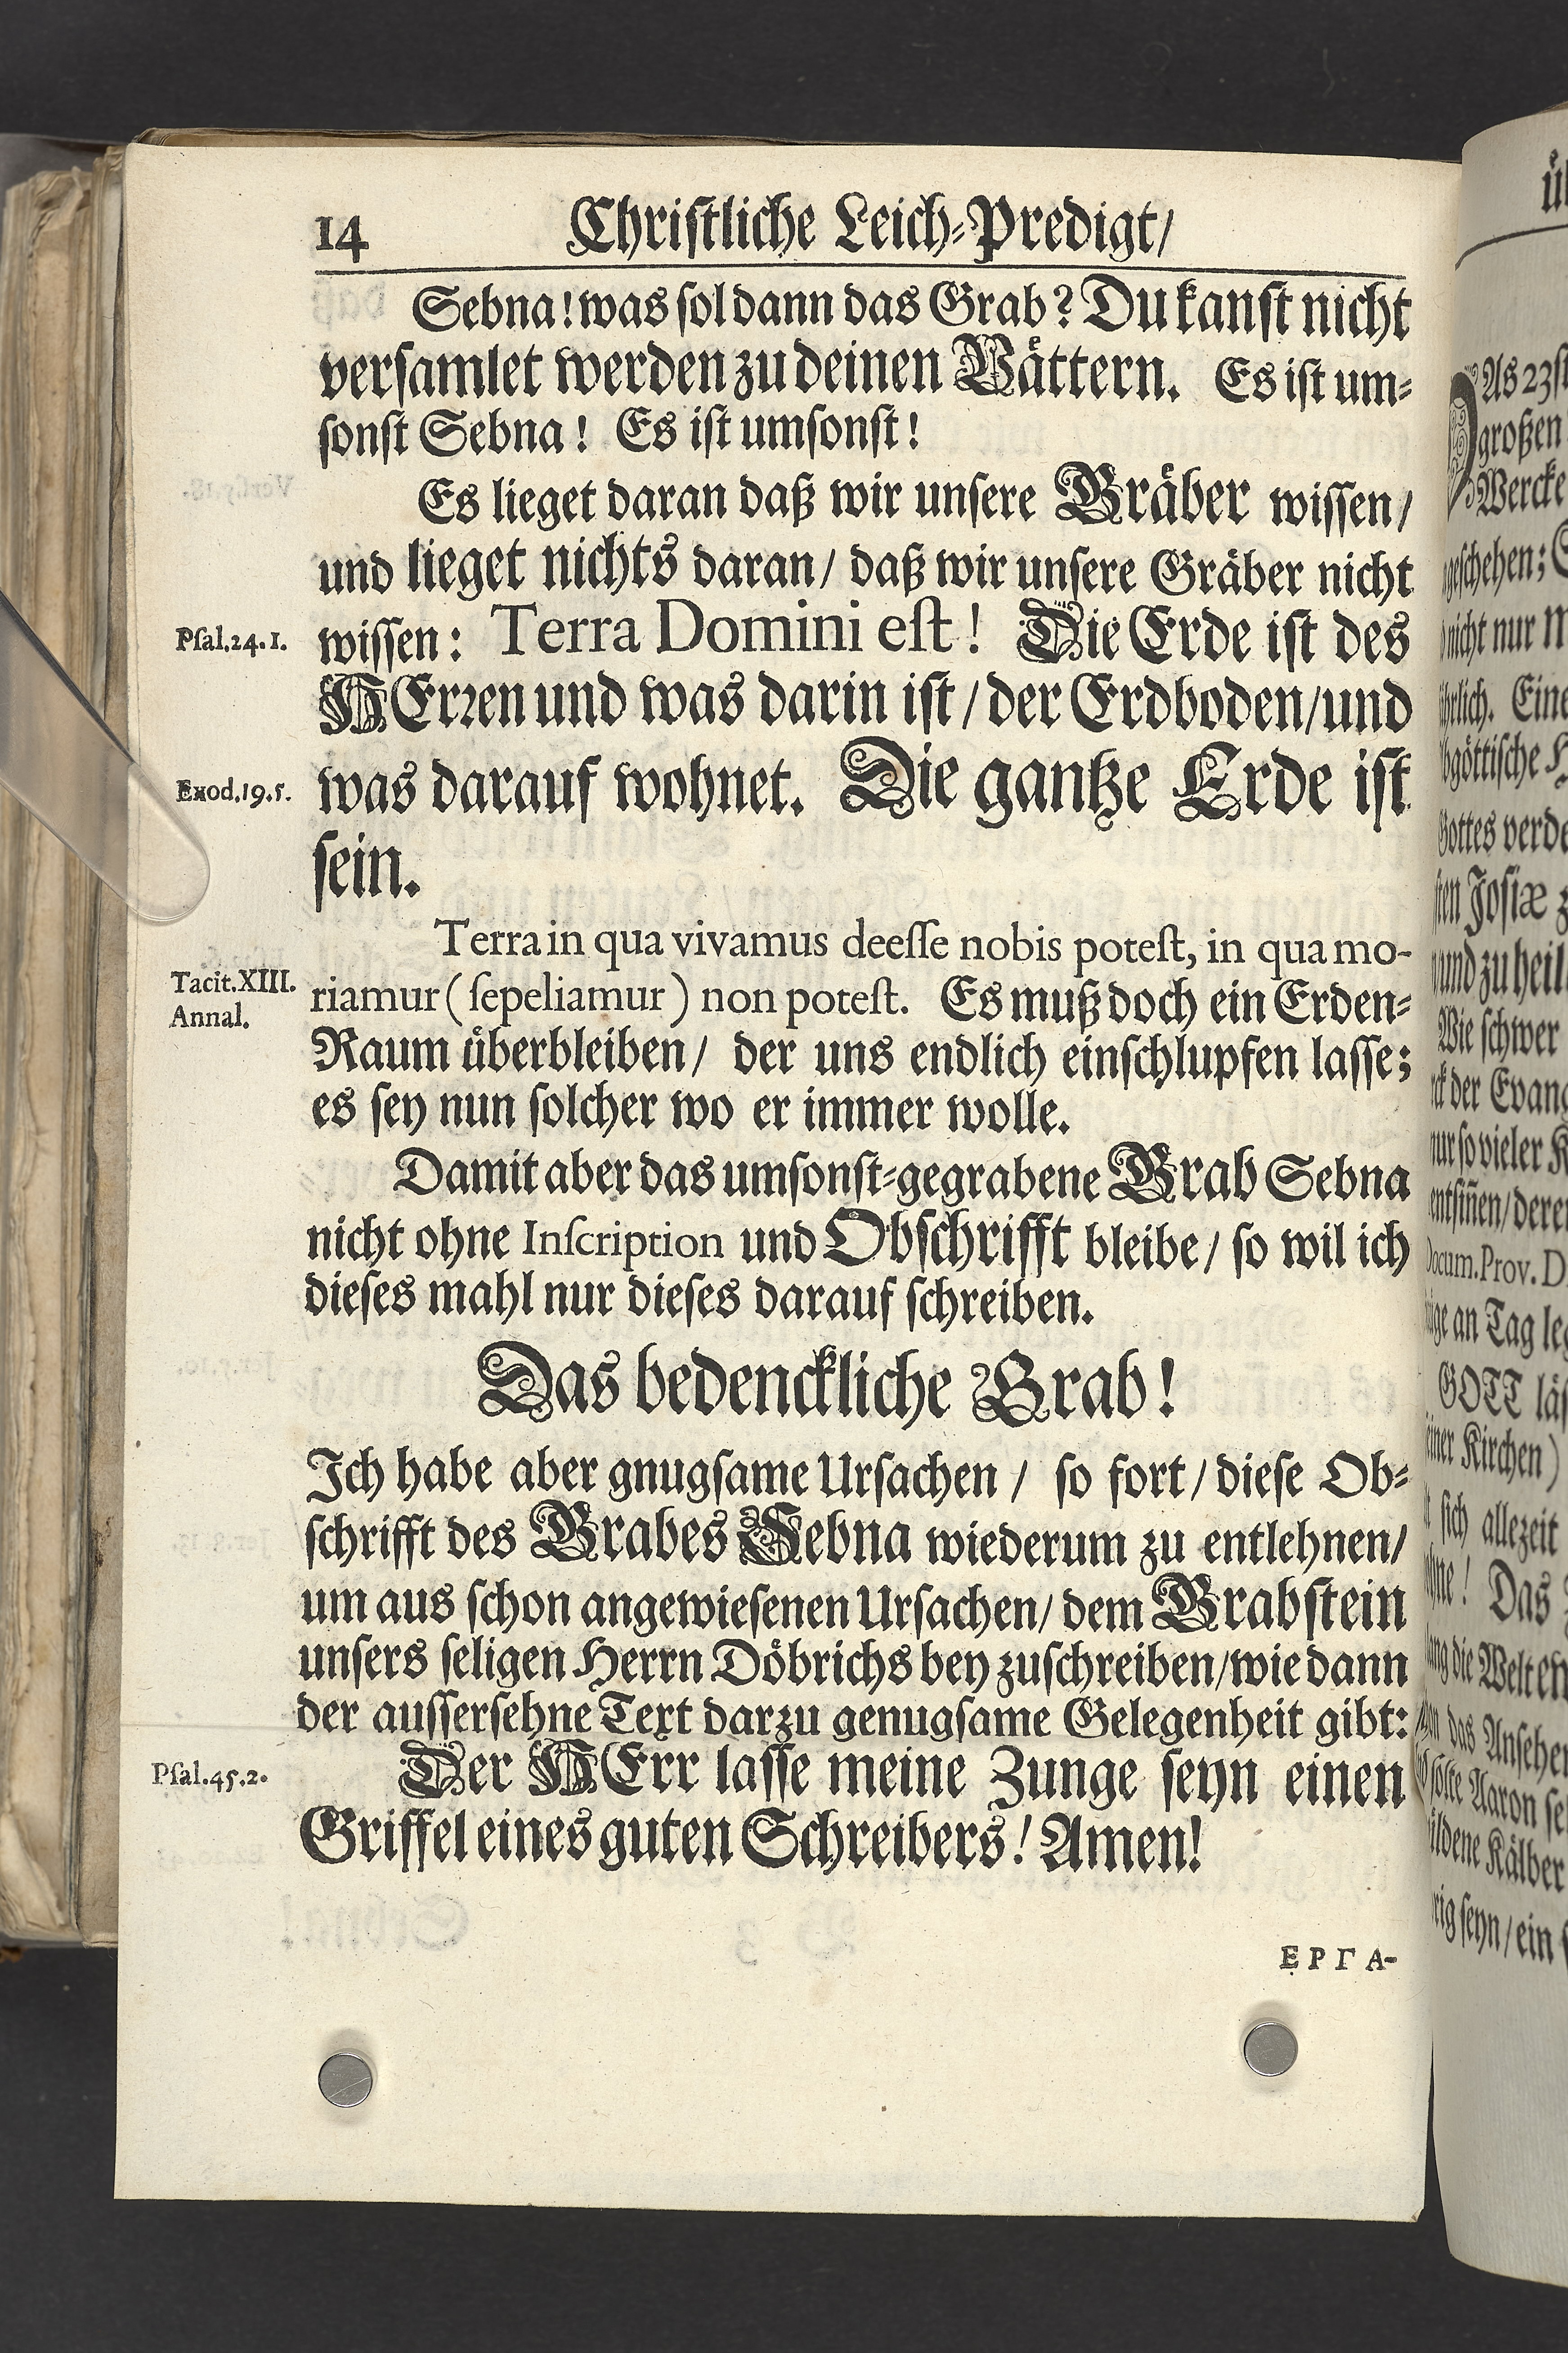 14 Christliche Leich-Predigt/
Sebna! was sol dann das Grab? Du kanst nicht
versamlet werden zu deinen Vättern. Es ist um-
sonst Sebna! Es ist umsonst!
Es lieget daran daß wir unsere Gräber wissen/
und lieget nichts daran/ daß wir unsere Gräber nicht
Psal. 24. 1.
wissen: Terra Domini est! Die Erde ist des
HErren und was darin ist/ der Erdboden/ und
Exod. 19. 5.
was darauf wohnet. Die gantze Erde ist
sein.
Terra in qua vivamus deesse nobis potest, in qua mo-
Tacit. XIII.
Annal.
riamur (sepeliamur) non potest. Es muß doch ein Erden-
Raum überbleiben/ der uns endlich einschlupfen lasse;
es sey nun solcher wo er immer wolle.
Damit aber das umsonst-gegrabene Grab Sebna
nicht ohne Inscription und Obschrifft bleibe/ so wil ich
dieses mahl nur dieses darauf schreiben.
Das bedenckliche Grab!
Ich habe aber gnugsame Ursachen/ so fort/ diese Ob-
schrifft des Grabes Sebna wiederum zu entlehnen/
um aus schon angewiesenen Ursachen/ dem Grabstein
unsers seligen Herrn Döbrichs bey zuschreiben/ wie dann
der aussersehne Text darzu genugsame Gelegenheit gibt:
Psal. 45. 2.
Der HErr lasse meine Zunge seyn einen
Griffel eines guten Schreibers! Amen!
ΕΡΓΑ-
As 23st
großen
Wercke
geschehen;
nicht nur
Eine
Gottes
Josiæ
und zu heil
Wie schwer
der Evang
nur so vieler
Docum. Prov. D
an Tag
GOTT
Kirchen)
sich allezeit
Das
die Welt
das Ansehen
solte Aaron
Kälber
seyn/ ein